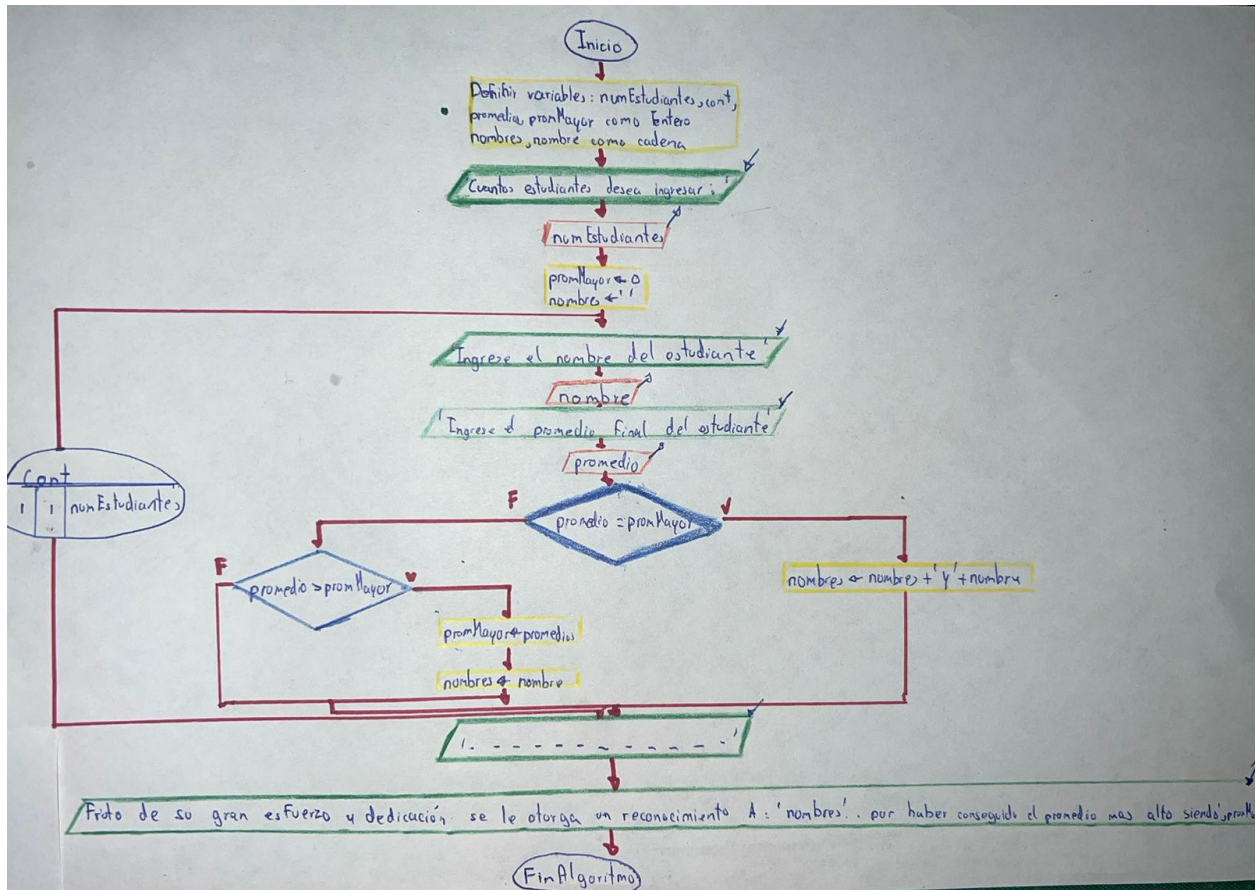 Inicio
Definir variables: numEstudiantes, cont,
promedio, promMayor como Entero
nombres, nombre como cadena
Cuantos estudiantes desea ingresar: '
numEstudiantes
promMayor ← 0
nombres ← ' '
'Ingrese el nombre del estudiante'
nombre
'Ingrese el promedio final del estudiante'
promedio
Cont
1 1 numEstudiantes
F promedio = promMayor V
F promedio > promMayor V
nombres ← nombres + 'y' + nombre
promMayor ← promedio
nombres ← nombre
'- - - - - - - - - - -'
Fruto de su gran esfuerzo y dedicación se le otorga un reconocimiento A: 'nombres'. por haber conseguido el promedio mas alto siendo', promM
FinAlgoritmo